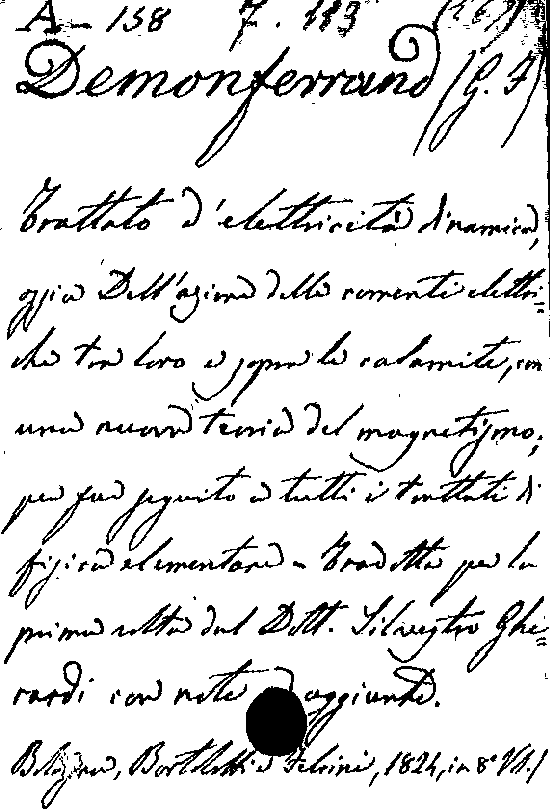 A - 158 7. 183
Demonferrand (G. F)
Trattato d'elettricità dinamica,
ossia Dell'azione delle correnti elettri=
che tra loro e sopra le calamite, con
una nuova teoria del magnetismo;
per far seguito a tutti i trattati di
fisica elementare - Tradotto per la
prima volta dal Dott. Silvestro Ghe=
rardi con note ed aggiunte.
Bologna, Bortolotti e Felcini, 1824, in 8°